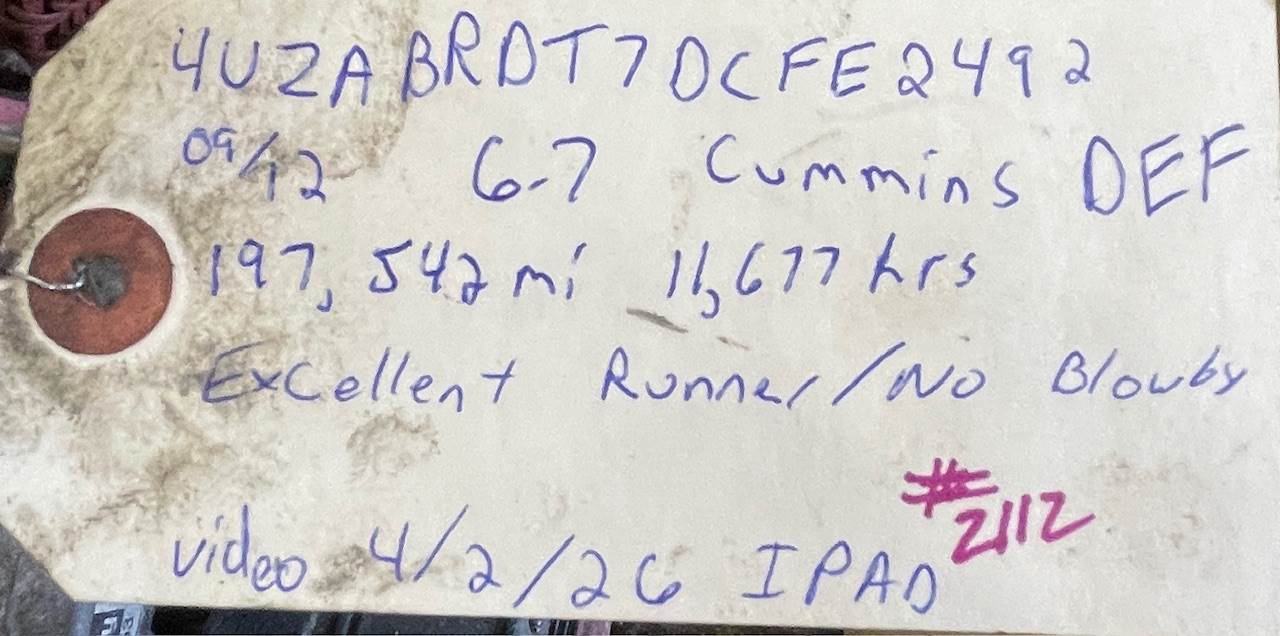 4UZABRDT7DCFE2492
09/12 6.7 Cummins DEF
197,542 mi 11,677 hrs
Excellent Runner/No Blowby
#2112
video 4/2/26 IPAD